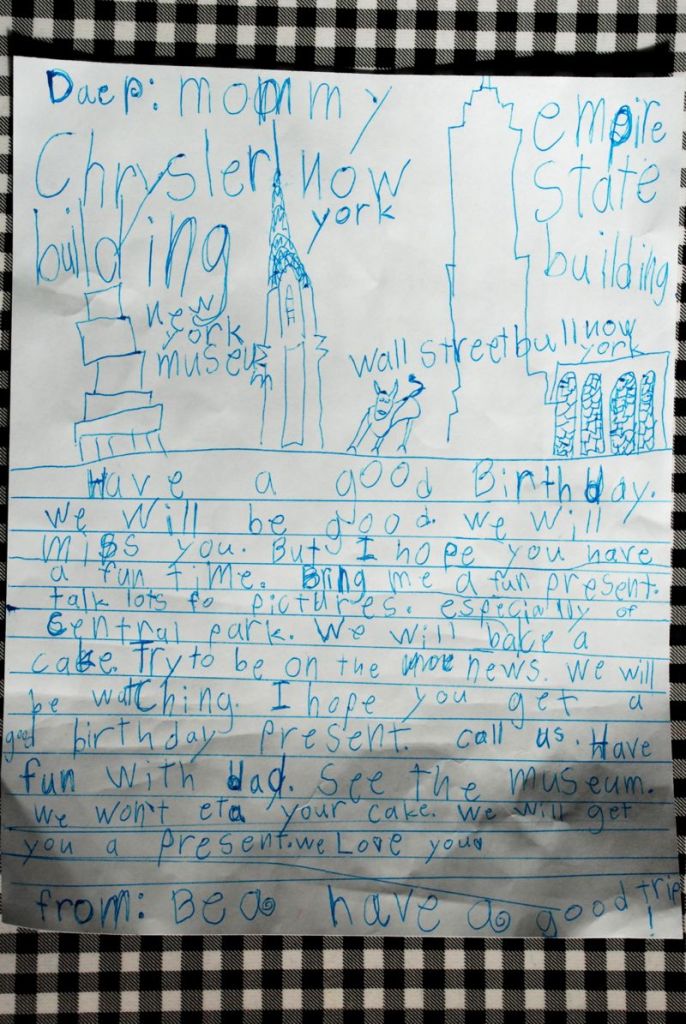 Daep: mommy
Chrysler now york
building
empire
State
building
new
york
museum
wall street bull now
york
Have a good Birthday.
we will be good. we will
miss you. But I hope you have
a fun time. Bring me a fun present.
talk lots fo pictures. especially of
Central park. We will bake a
cake. Try to be on the news. we will
be watching. I hope you get a
good birthday present. call us. Have
fun with dad. See the museum.
we won't eta your cake. we will get
you a present. we Love you
from: Bea have a good trip!